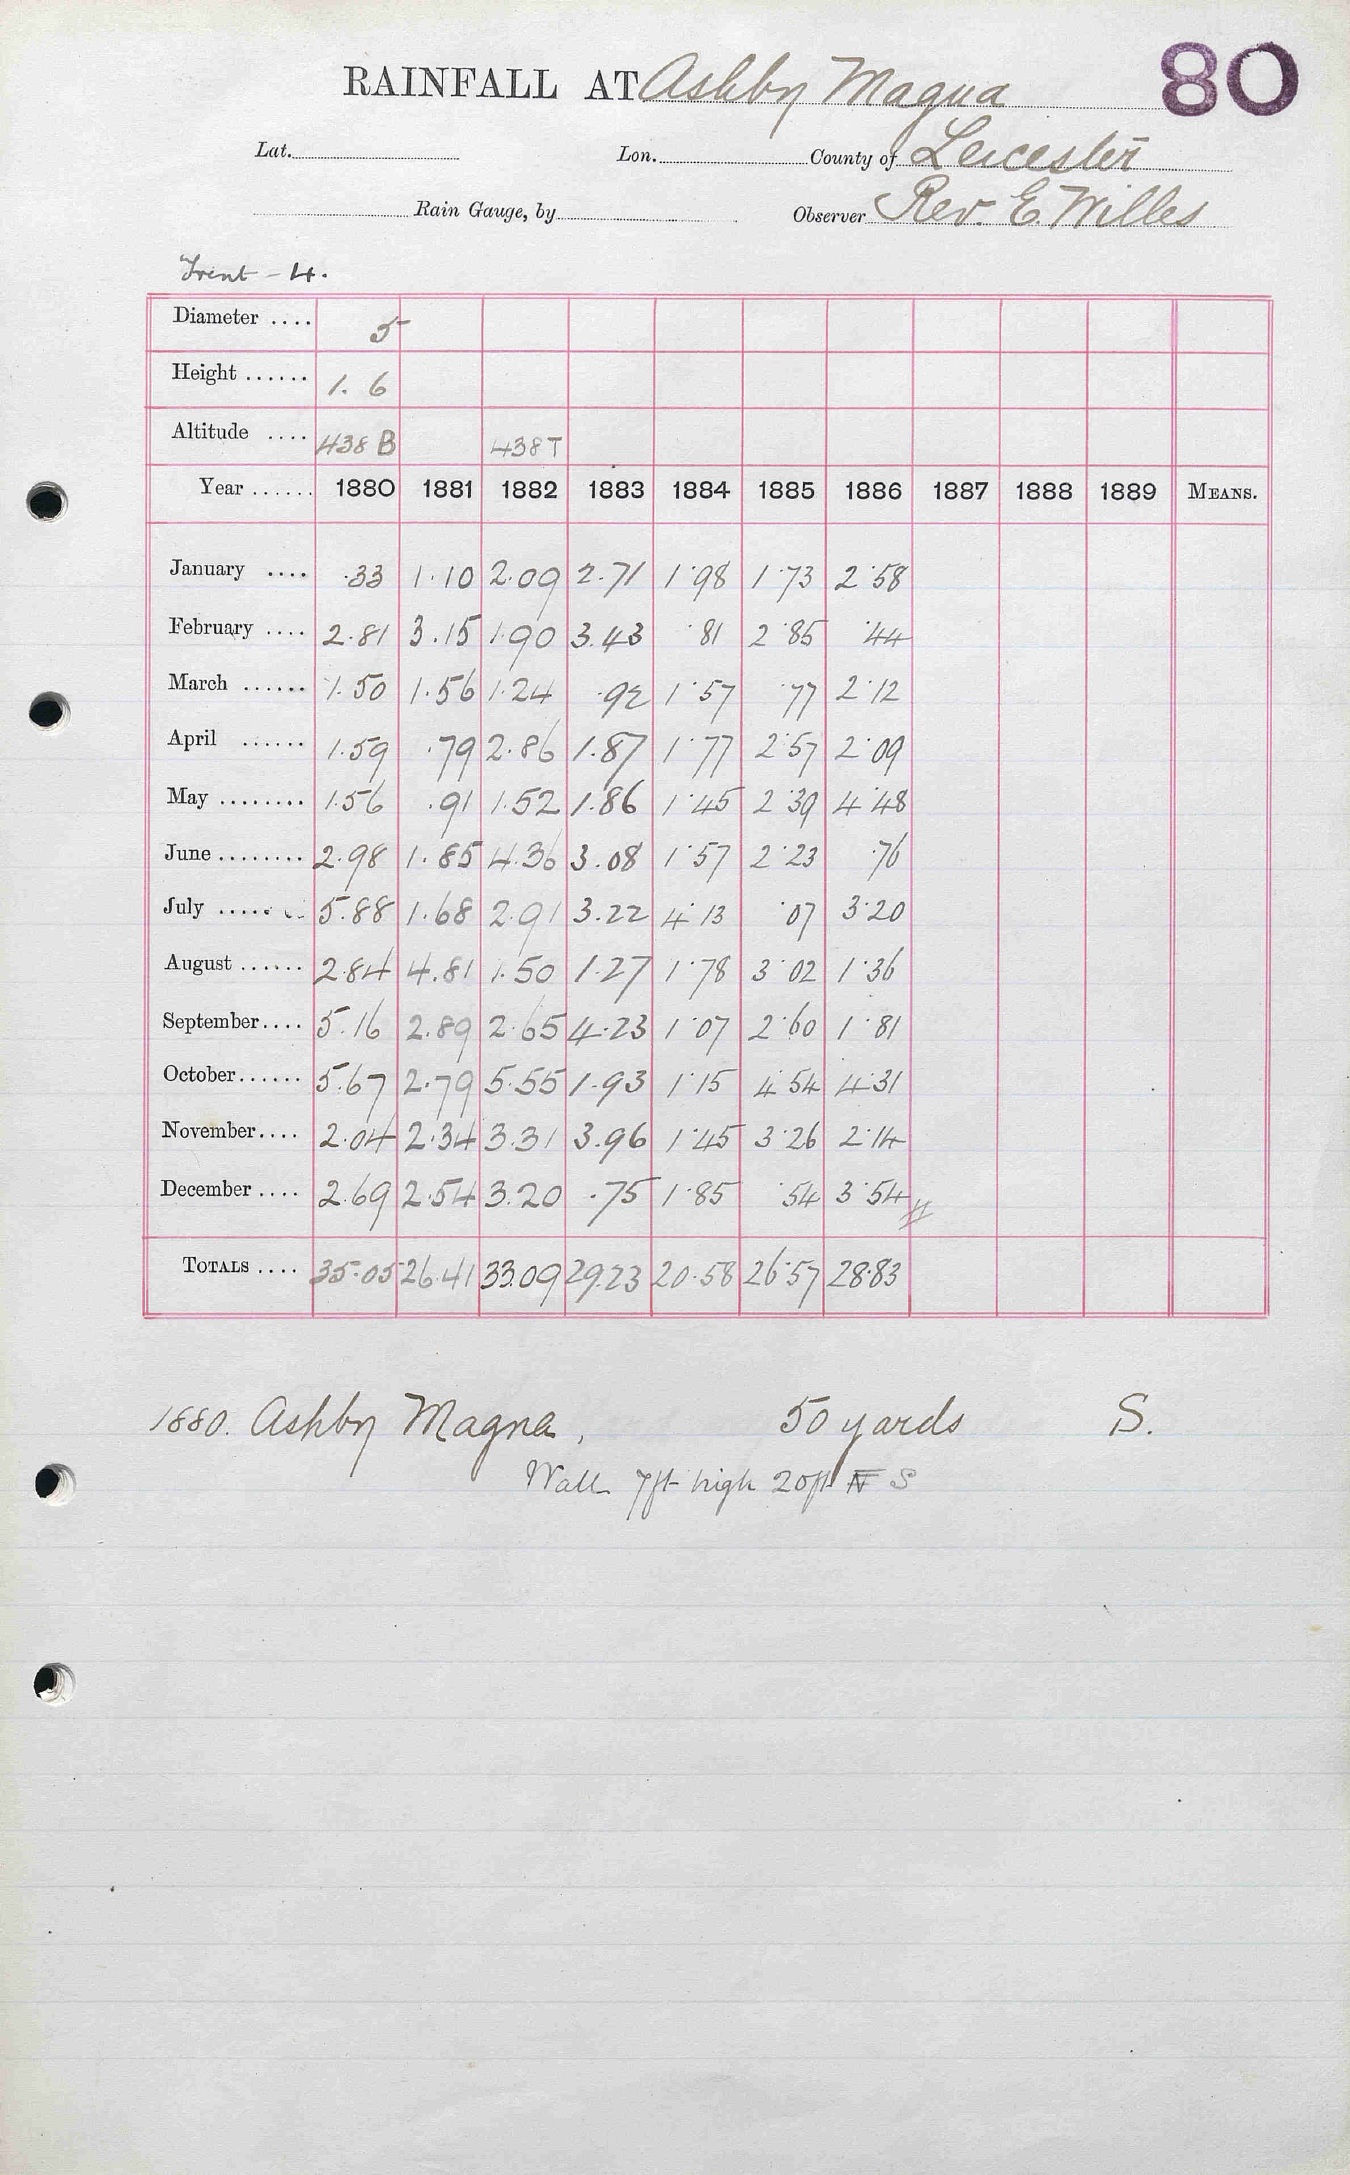 RAINFALL AT Ashby Magna 80
Lat. Lon. County of Leicester
Rain Gauge, by Observer Rev. E. Willes
Trent - 4.
Diameter .... 5
Height ...... 1. 6
Altitude .... 438 B 438 T
Year ...... 1880 1881 1882 1883 1884 1885 1886 1887 1888 1889 MEANS.
January .... .33 1.10 2.09 2.71 1.98 1.73 2.58
February .... 2.81 3.15 1.90 3.43 .81 2.85 .44
March ...... 1.50 1.56 1.24 .92 1.57 .77 2.12
April ...... 1.59 .79 2.86 1.87 1.77 2.57 2.09
May ........ 1.56 .91 1.52 1.86 1.45 2.39 4.48
June ........ 2.98 1.85 4.36 3.08 1.57 2.23 .76
July ..... 5.88 1.68 2.91 3.22 4.13 .07 3.20
August ...... 2.84 4.81 1.50 1.27 1.78 3.02 1.36
September .... 5.16 2.89 2.65 4.23 1.07 2.60 1.81
October ...... 5.67 2.79 5.55 1.93 1.15 4.54 4.31
November .... 2.04 2.34 3.31 3.96 1.45 3.26 2.14
December .... 2.69 2.54 3.20 .75 1.85 .54 3.54
TOTALS .... 35.05 26.41 33.09 29.23 20.58 26.57 28.83
1880. Ashby Magna, 50 yards S.
Wall 7ft high 20ft N S